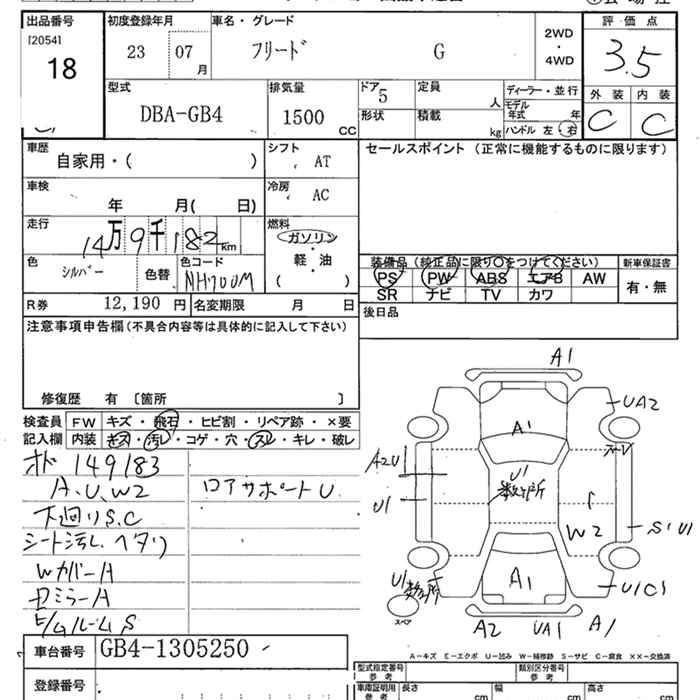 出品番号 初度登録年月 車名・グレード 評価点
[2054] 18
23 07 月 フリード G 2WD・4WD 3.5
型式 排気量 ドア 定員 ディーラー・並行 外装 内装
DBA-GB4 1500 CC 5 人 モデル年式 年 C C
形状 積載 kg ハンドル 左・右
車歴 シフト セールスポイント (正常に機能するものに限ります)
自家用・( ) AT
車検 冷房
年 月( 日) AC
走行 燃料
14万9千182 km ガソリン
軽・油
( )
色 シルバー 色替 色コード NH700M
装備品 (純正品に限り○をつけてください) 新車保証書
PS PW ABS エアB AW 有・無
SR ナビ TV カワ
R券 12,190 円 名変期限 月 日
後日品
注意事項申告欄(不具合内容等は具体的に記入して下さい)
修復歴 有 〔箇所 〕
検査員 FW キズ・飛石・ヒビ割・リペア跡・×要
記入欄 内装 キズ・汚レ・コゲ・穴・スレ・キレ・破レ
149183
A.U.W2 ロアサポートU
下廻りS.C
シート汚レ ヘタリ
WカバーA
ミラーA
E/GルームS
車台番号 GB4-1305250
登録番号
A1
UA2
A1
A2U
U1
U1
W2
S1 U1
U1
A1
U1C1
スペア
A2 UA1 A1
A－キズ E－エクボ U－凹み W－補修跡 S－サビ C－腐食 ××－交換済
型式指定番号 参考 類別区分番号 参考
車庫証明用 参考 長さ cm 幅 cm 高さ cm